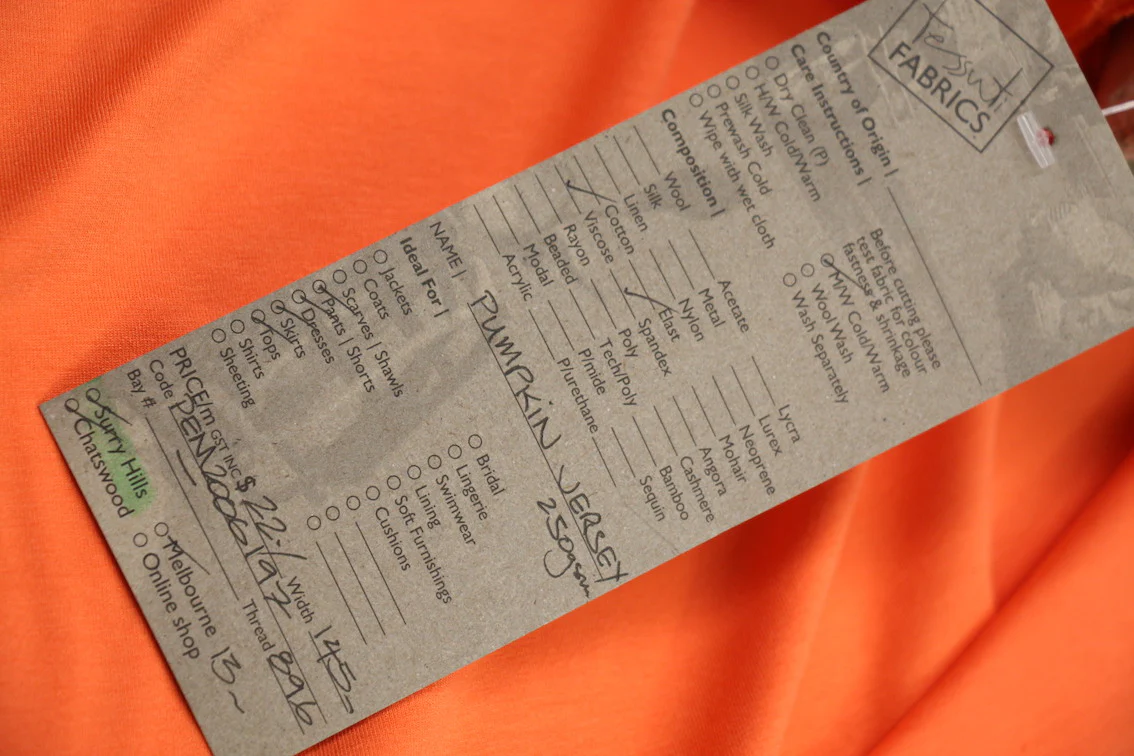 tessuti
FABRICS.
Country of Origin |
Care Instructions |
Dry Clean (P)
H/W Cold/Warm
Silk Wash
Prewash Cold
Wipe with wet cloth
Before cutting please
test fabric for colour
fastness & shrinkage
M/W Cold/Warm
Wool Wash
Wash Separately
Composition |
Wool
Silk
Linen
Cotton
Viscose
Rayon
Beaded
Modal
Acrylic
Acetate
Metal
Nylon
Elast
Spandex
Poly
Tech/Poly
P/mide
P/urethane
Lycra
Lurex
Neoprene
Mohair
Angora
Cashmere
Bamboo
Sequin
NAME | PUMPKIN JERSEY
250gsm
Ideal For |
Jackets
Coats
Scarves | Shawls
Pants | Shorts
Dresses
Skirts
Tops
Shirts
Sheeting
Bridal
Lingerie
Swimwear
Lining
Soft Furnishings
Cushions
PRICE/m GST INC $ 22./ Width 145
Code PENN2006/197 Thread 896
Bay #
Surry Hills
Chatswood
Melbourne 13
Online shop